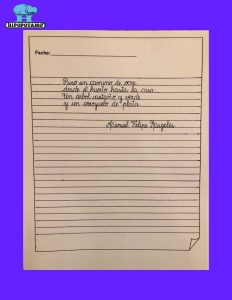 HIPOPOTAMO
Fecha:
Puso un camino de oro
desde el huerto hasta la casa...
Un árbol castaño y verde
y un conejito de plata.
Manuel Felipe Rugeles